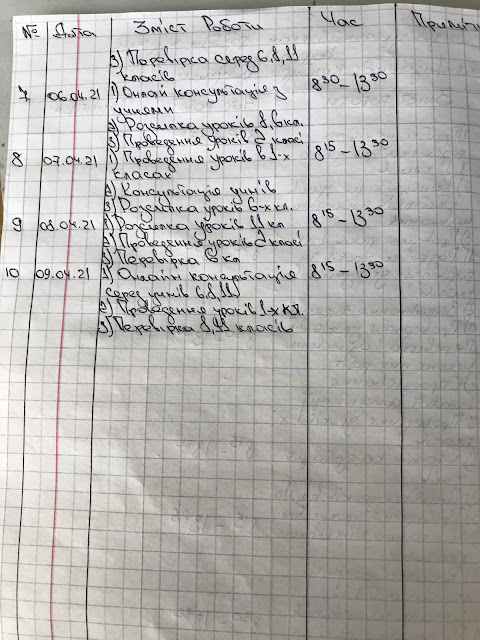 № Дата Зміст Роботи Час Приміт
3) Перевірка серед 6,8,11
класів
7 06.04.21 1) Онлай консультація з 8³⁰ – 13³⁰
учнями
2) Розсилка уроків 8, 6 кл.
3) Проведення уроків 2 класі
8 07.04.21 1) Проведення уроків в 1-х 8¹⁵ – 13³⁰
класах
2) Консультація учнів
3) Розсилка уроків 6-х кл.
9 08.04.21 1) Розсилка уроків 11 кл 8¹⁵ – 13³⁰
2) Проведення уроків 2 класі
3) Перевірка 6 кл
10 09.04.21 1) Онлайн консультація 8¹⁵ – 13³⁰
серед учнів 6,8,11)
2) Проведення уроків 1-х кл.
3) Перевірка 8, 11 класів